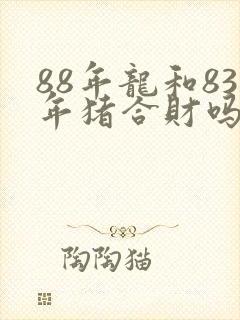 88年龍和83
年猪合財吗
陶陶猫